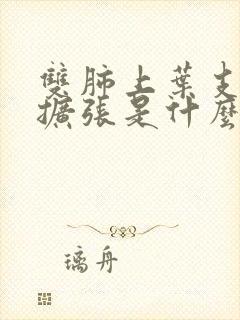 雙肺上葉支
擴張是什麼
璃舟